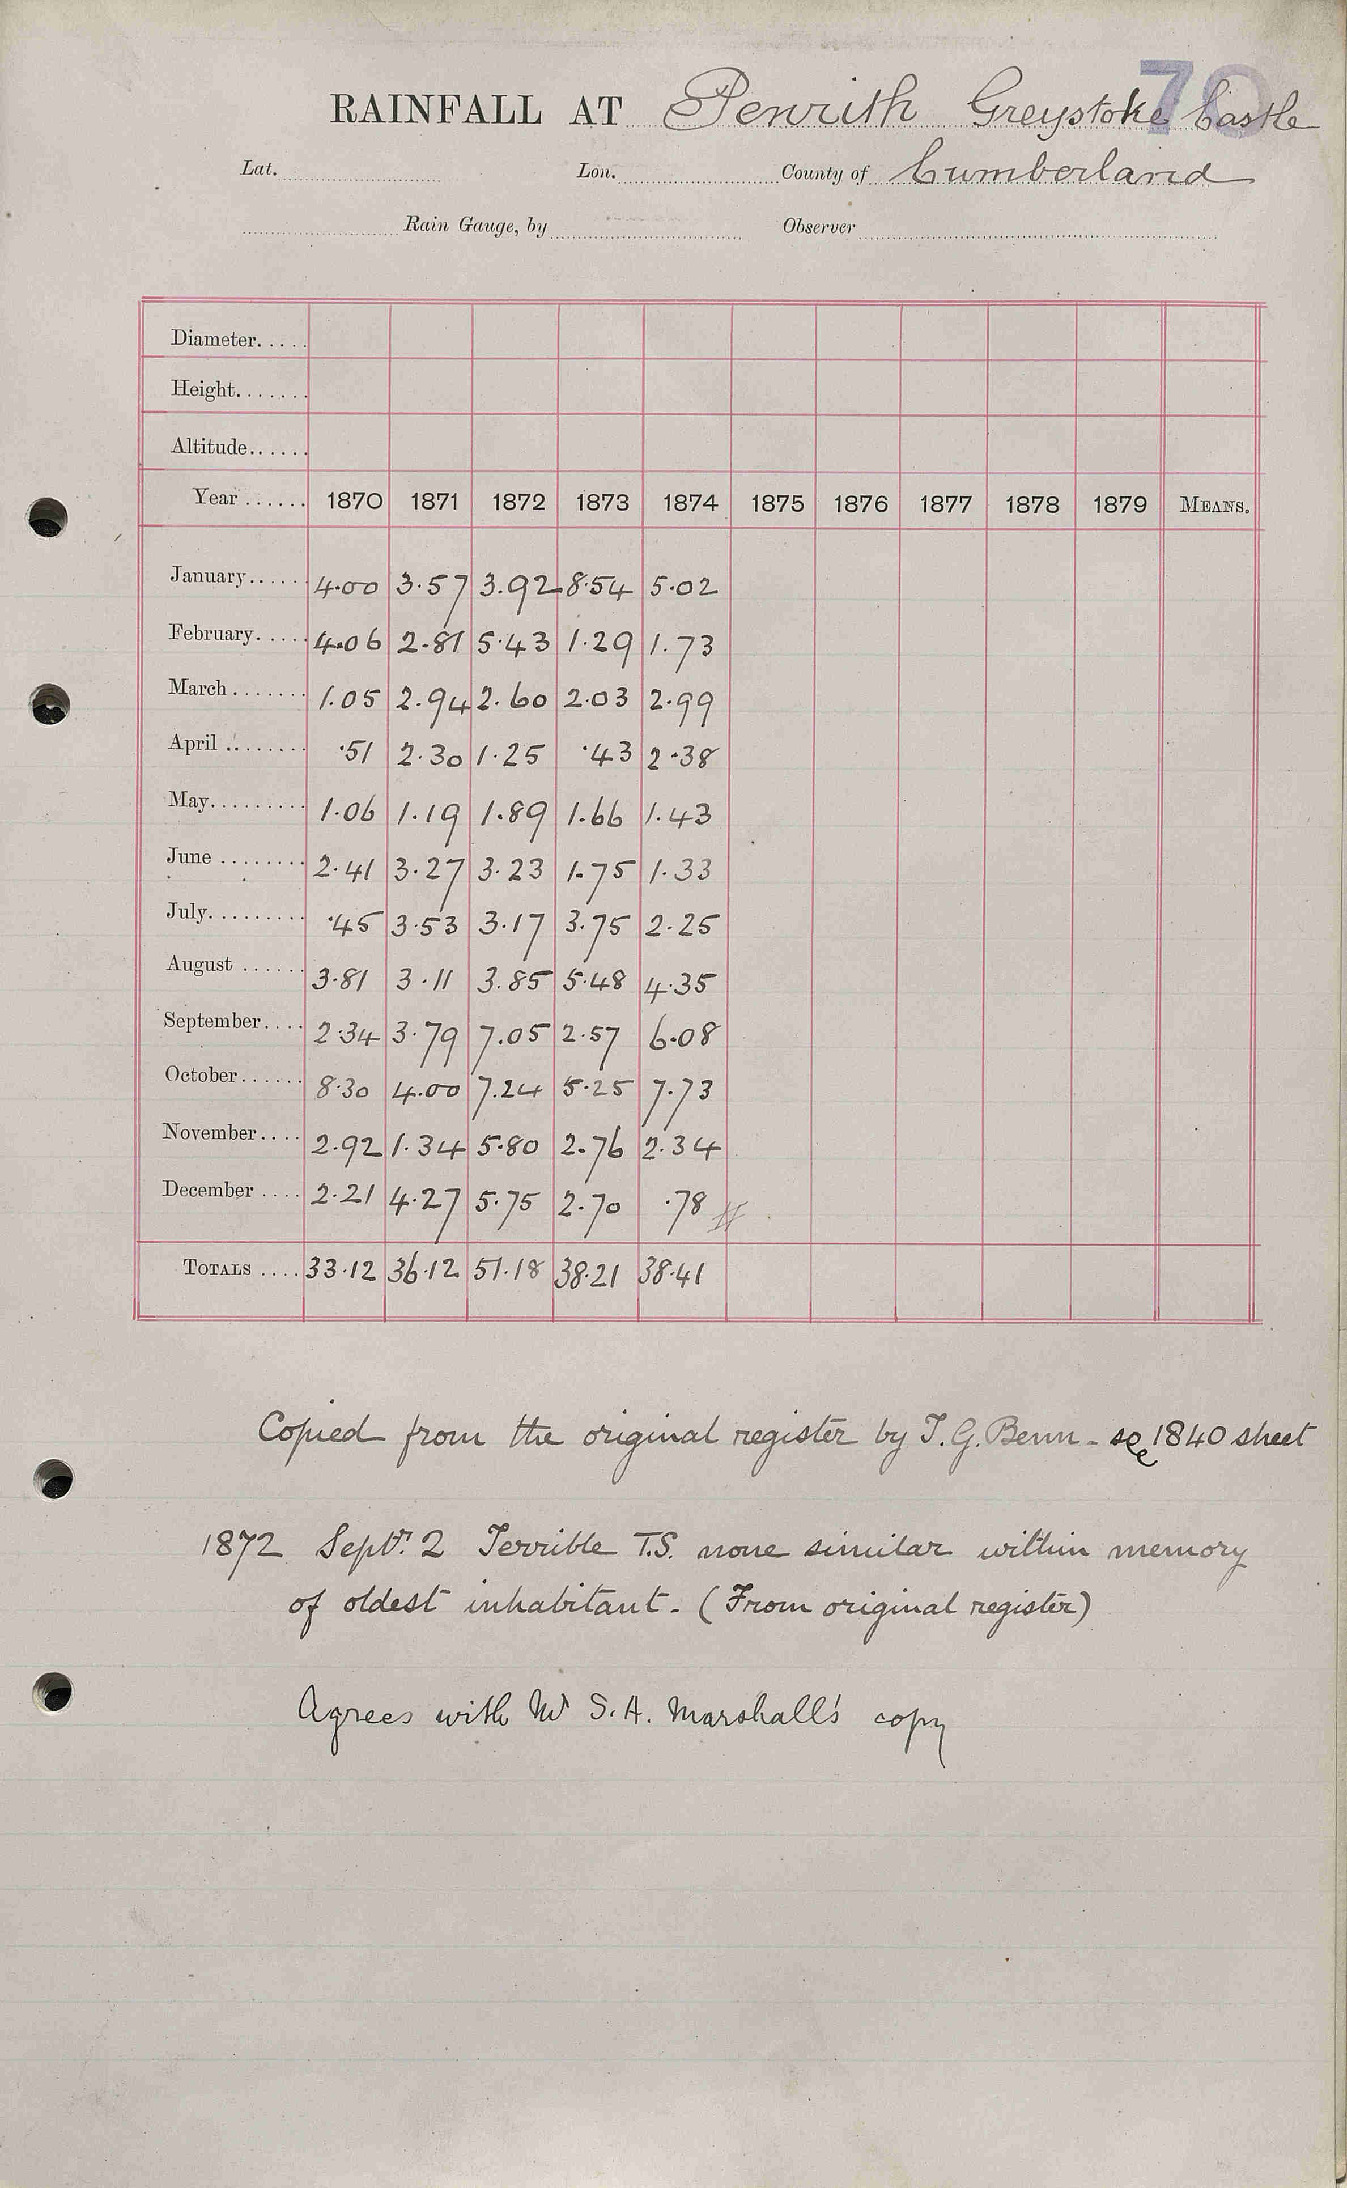 70
RAINFALL AT Penrith Greystoke Castle
Lat. Lon. County of Cumberland
Rain Gauge, by Observer
Diameter.....
Height.......
Altitude......
Year ...... 1870 1871 1872 1873 1874 1875 1876 1877 1878 1879 MEANS.
January...... 4.00 3.57 3.92 8.54 5.02
February..... 4.06 2.81 5.43 1.29 1.73
March ....... 1.05 2.94 2.60 2.03 2.99
April ........ .51 2.30 1.25 .43 2.38
May......... 1.06 1.19 1.89 1.66 1.43
June ........ 2.41 3.27 3.23 1.75 1.33
July......... .45 3.53 3.17 3.75 2.25
August ...... 3.81 3.11 3.85 5.48 4.35
September.... 2.34 3.79 7.05 2.57 6.08
October...... 8.30 4.00 7.24 5.25 7.73
November.... 2.92 1.34 5.80 2.76 2.34
December .... 2.21 4.27 5.75 2.70 .78 #
TOTALS .... 33.12 36.12 51.18 38.21 38.41
Copied from the original register by T.G. Benn - see 1840 sheet
1872 Septr. 2 Terrible T.S. none similar within memory
of oldest inhabitant. (From original register)
Agrees with Mr S.A. Marshall's copy